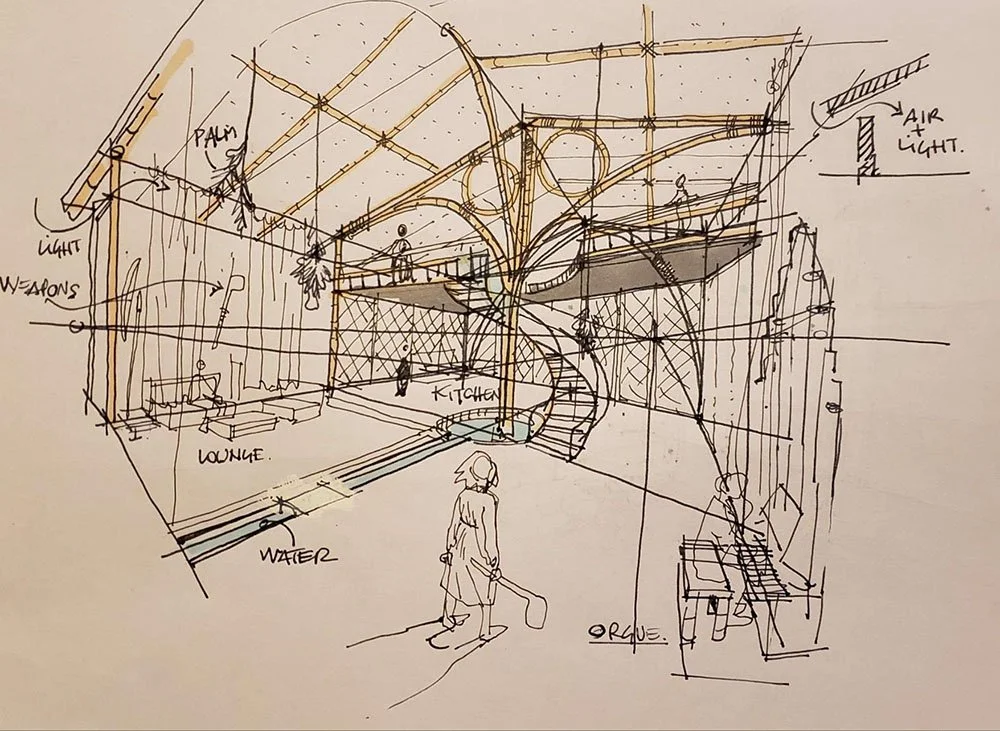 PALM
AIR
+
LIGHT.
LIGHT
WEAPONS
KITCHEN
LOUNGE.
WATER
ORGUE.